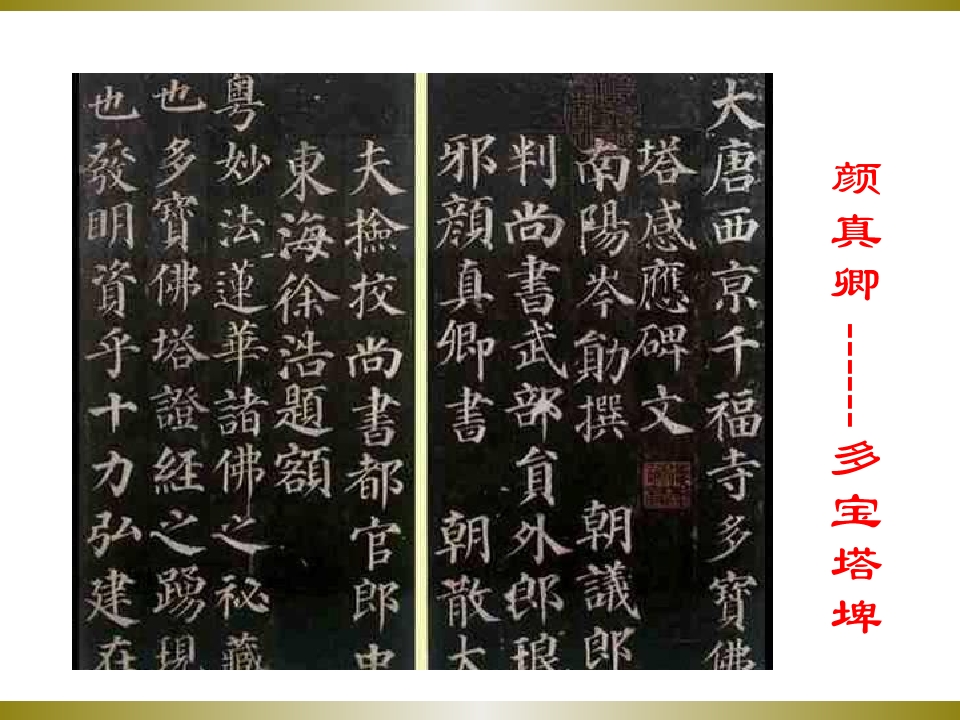 颜真卿-------多宝塔埤
大唐西京千福寺多寶佛
塔感應碑文
南陽岑勛撰 朝議郎
判尚書武部貟外郎琅
邪顏真卿書 朝散大
夫撿挍尚書都官郎中
東海徐浩題額
粵妙法蓮華諸佛之祕藏
也多寶佛塔證經之踴現
也發明資乎十力弘建在